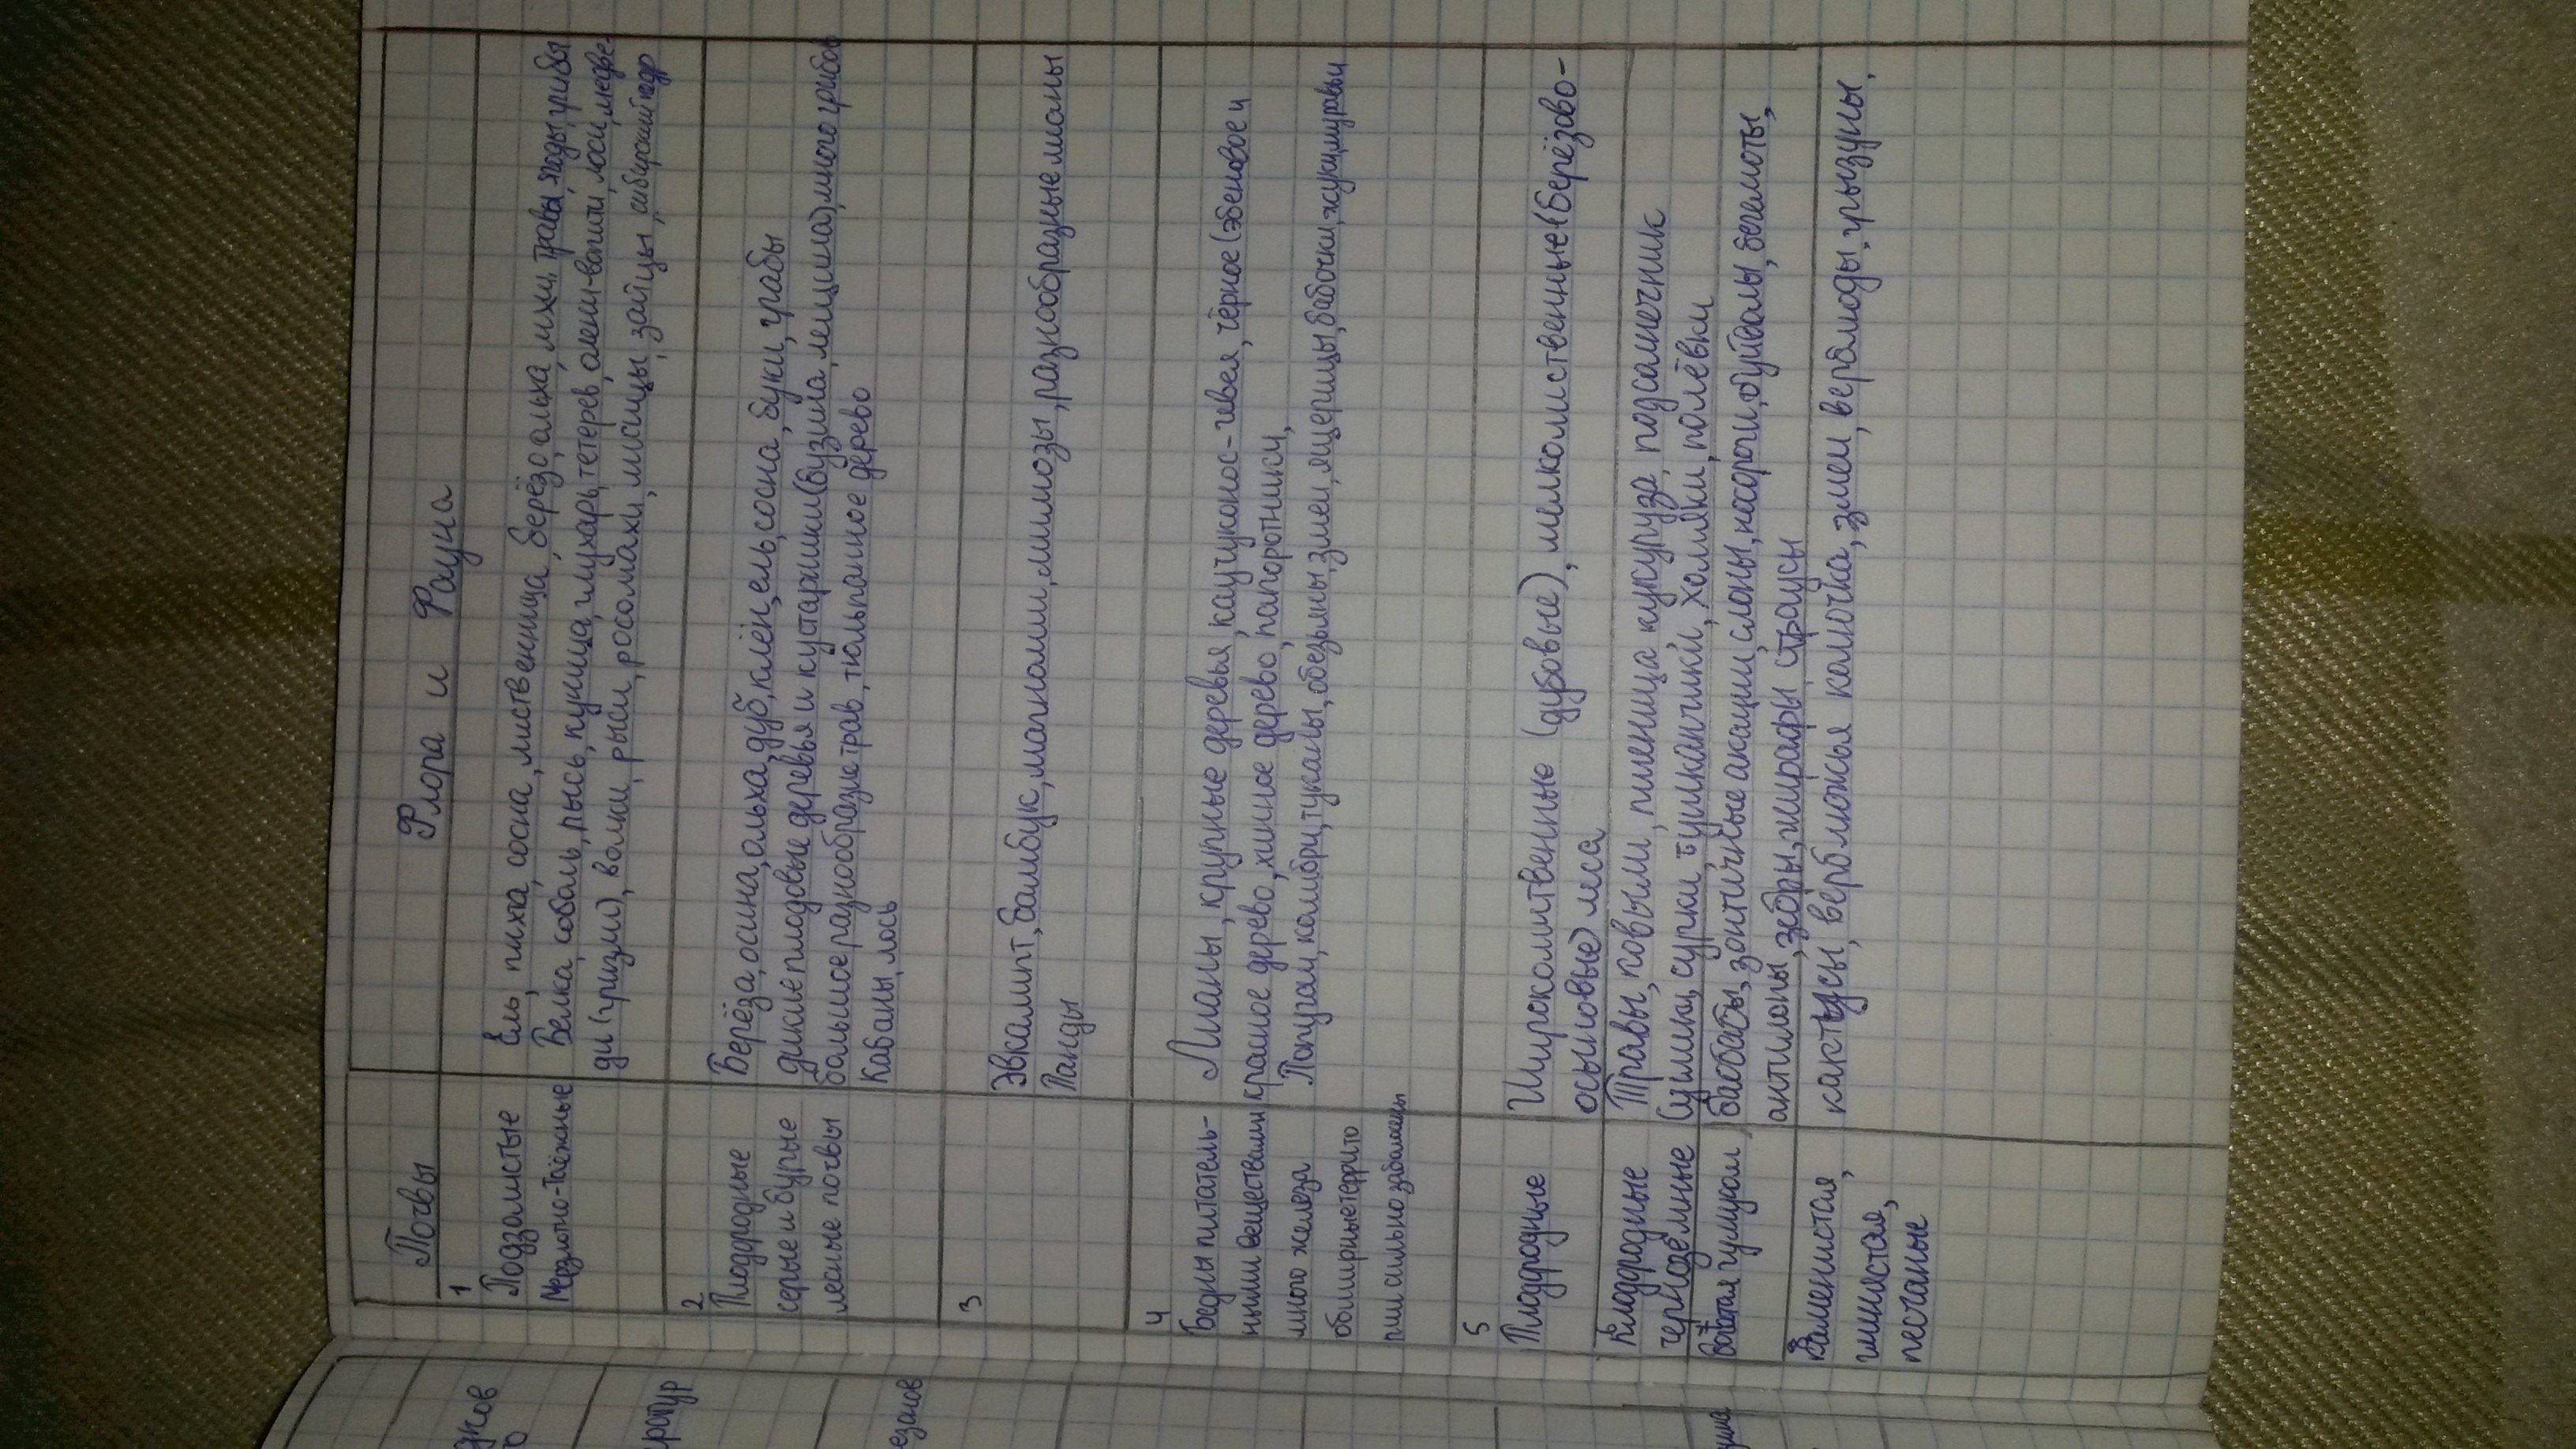 Почвы
Флора и Фауна
1
Подзолистые
Мерзлотно-таёжные
Ель, пихта, сосна, лиственница, берёза, ольха, мхи, травы, ягоды, грибы
Белка, соболь, рысь, куница, глухарь, тетерев, олени-вапити, лоси, медве-
ди (гризли), волки, рыси, росомахи, лисицы, зайцы, сибирский кедр
2
Плодородные
серые и бурые
лесные почвы
Берёза, осина, ольха, дуб, клён, ель, сосна, буки, грабы
дикие плодовые деревья и кустарники (бузина, лещина), много грибов
большое разнообразие трав, тюльпанное дерево
Кабаны, лось
3
Эвкалипт, бамбук, магнолии, мимозы, разнообразные лианы
Панды
4
Бедны питатель-
ными веществами
много железа
обширные террито
рии сильно заболочены
Лианы, крупные деревья, каучуконос-гевея, чёрное (эбеновое и
красное дерево, хинное дерево, папоротники,
Попугаи, колибри, туканы, обезьяны, змеи, ящерицы, бабочки, жуки, муравьи
5
Плодродные
Широколиственные (дубовые), мелколиственные (берёзово-
осиновые) леса
Плодродные
чернозёмные
Травы, ковыли, пшеница, кукуруза, подсолнечник
Суслики, сурки, тушканчики, хомяки, полёвки
богатая гумусом
баобабы, зонтичные акации, слоны, носороги, буйволы, бегемоты,
антилопы, зебры, жирафы, страусы
Каменистая,
глинистая,
песчаные
кактусы, верблюжья колючка, змеи, верблюды, грызуны.
дков
ратур
езонов